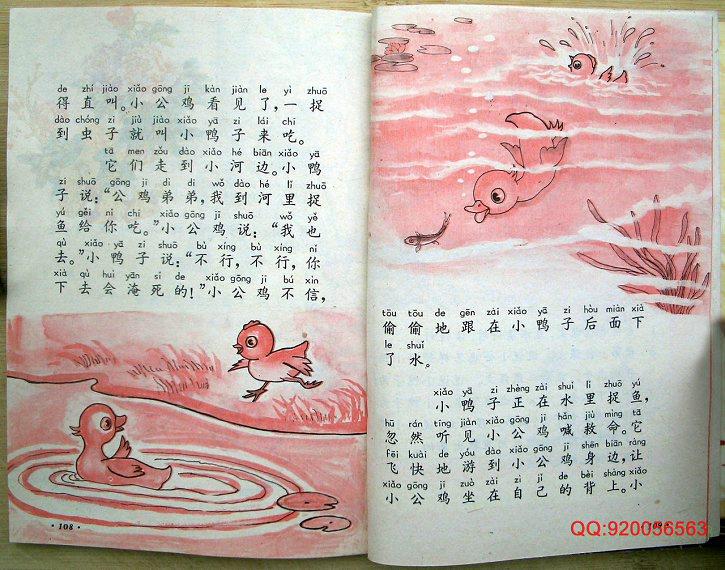 de zhí jiào xiǎo gōng jī kàn jiàn le yì zhuō
得直叫。小公鸡看见了，一捉
dào chóng zi jiù jiào xiǎo yā zi lái chī
到虫子就叫小鸭子来吃。
tā men zǒu dào xiǎo hé biān xiǎo yā
它们走到小河边。小鸭
zi shuō gōng jī dì di wǒ dào hé lǐ zhuō
子说：“公鸡弟弟，我到河里捉
yú gěi nǐ chī xiǎo gōng jī shuō wǒ yě
鱼给你吃。”小公鸡说：“我也
qù xiǎo yā zi shuō bù xíng bù xíng nǐ
去。”小鸭子说：“不行，不行，你
xià qù huì yān sǐ de xiǎo gōng jī bú xìn
下去会淹死的！”小公鸡不信，
·108·
tōu tōu de gēn zài xiǎo yā zi hòu miàn xià
偷偷地跟在小鸭子后面下
le shuǐ
了水。
xiǎo yā zi zhèng zài shuǐ lǐ zhuō yú
小鸭子正在水里捉鱼，
hū rán tīng jiàn xiǎo gōng jī hǎn jiù mìng tā
忽然听见小公鸡喊救命。它
fēi kuài de yóu dào xiǎo gōng jī shēn biān ràng
飞快地游到小公鸡身边，让
xiǎo gōng jī zuò zài zì jǐ de bèi shàng xiǎo
小公鸡坐在自己的背上。小
QQ:920056563